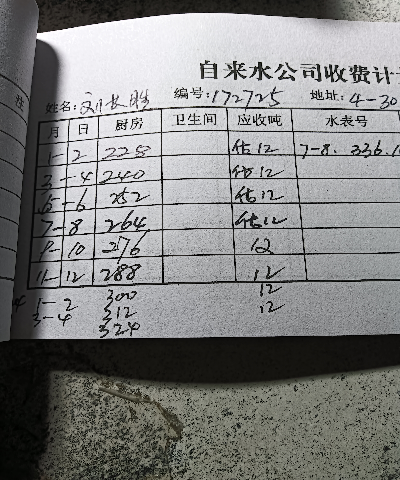 自来水公司收费计
姓名: 刘长胜 编号: 172725 地址: 4-30
月 日 厨房 卫生间 应收吨 水表号
1-2 228 估12 7-8. 336.1
3-4 240 估12
5-6 252 估12
7-8 264 估12
9-10 276 12
11-12 288 12
1-2 300 12
3-4 312 12
324